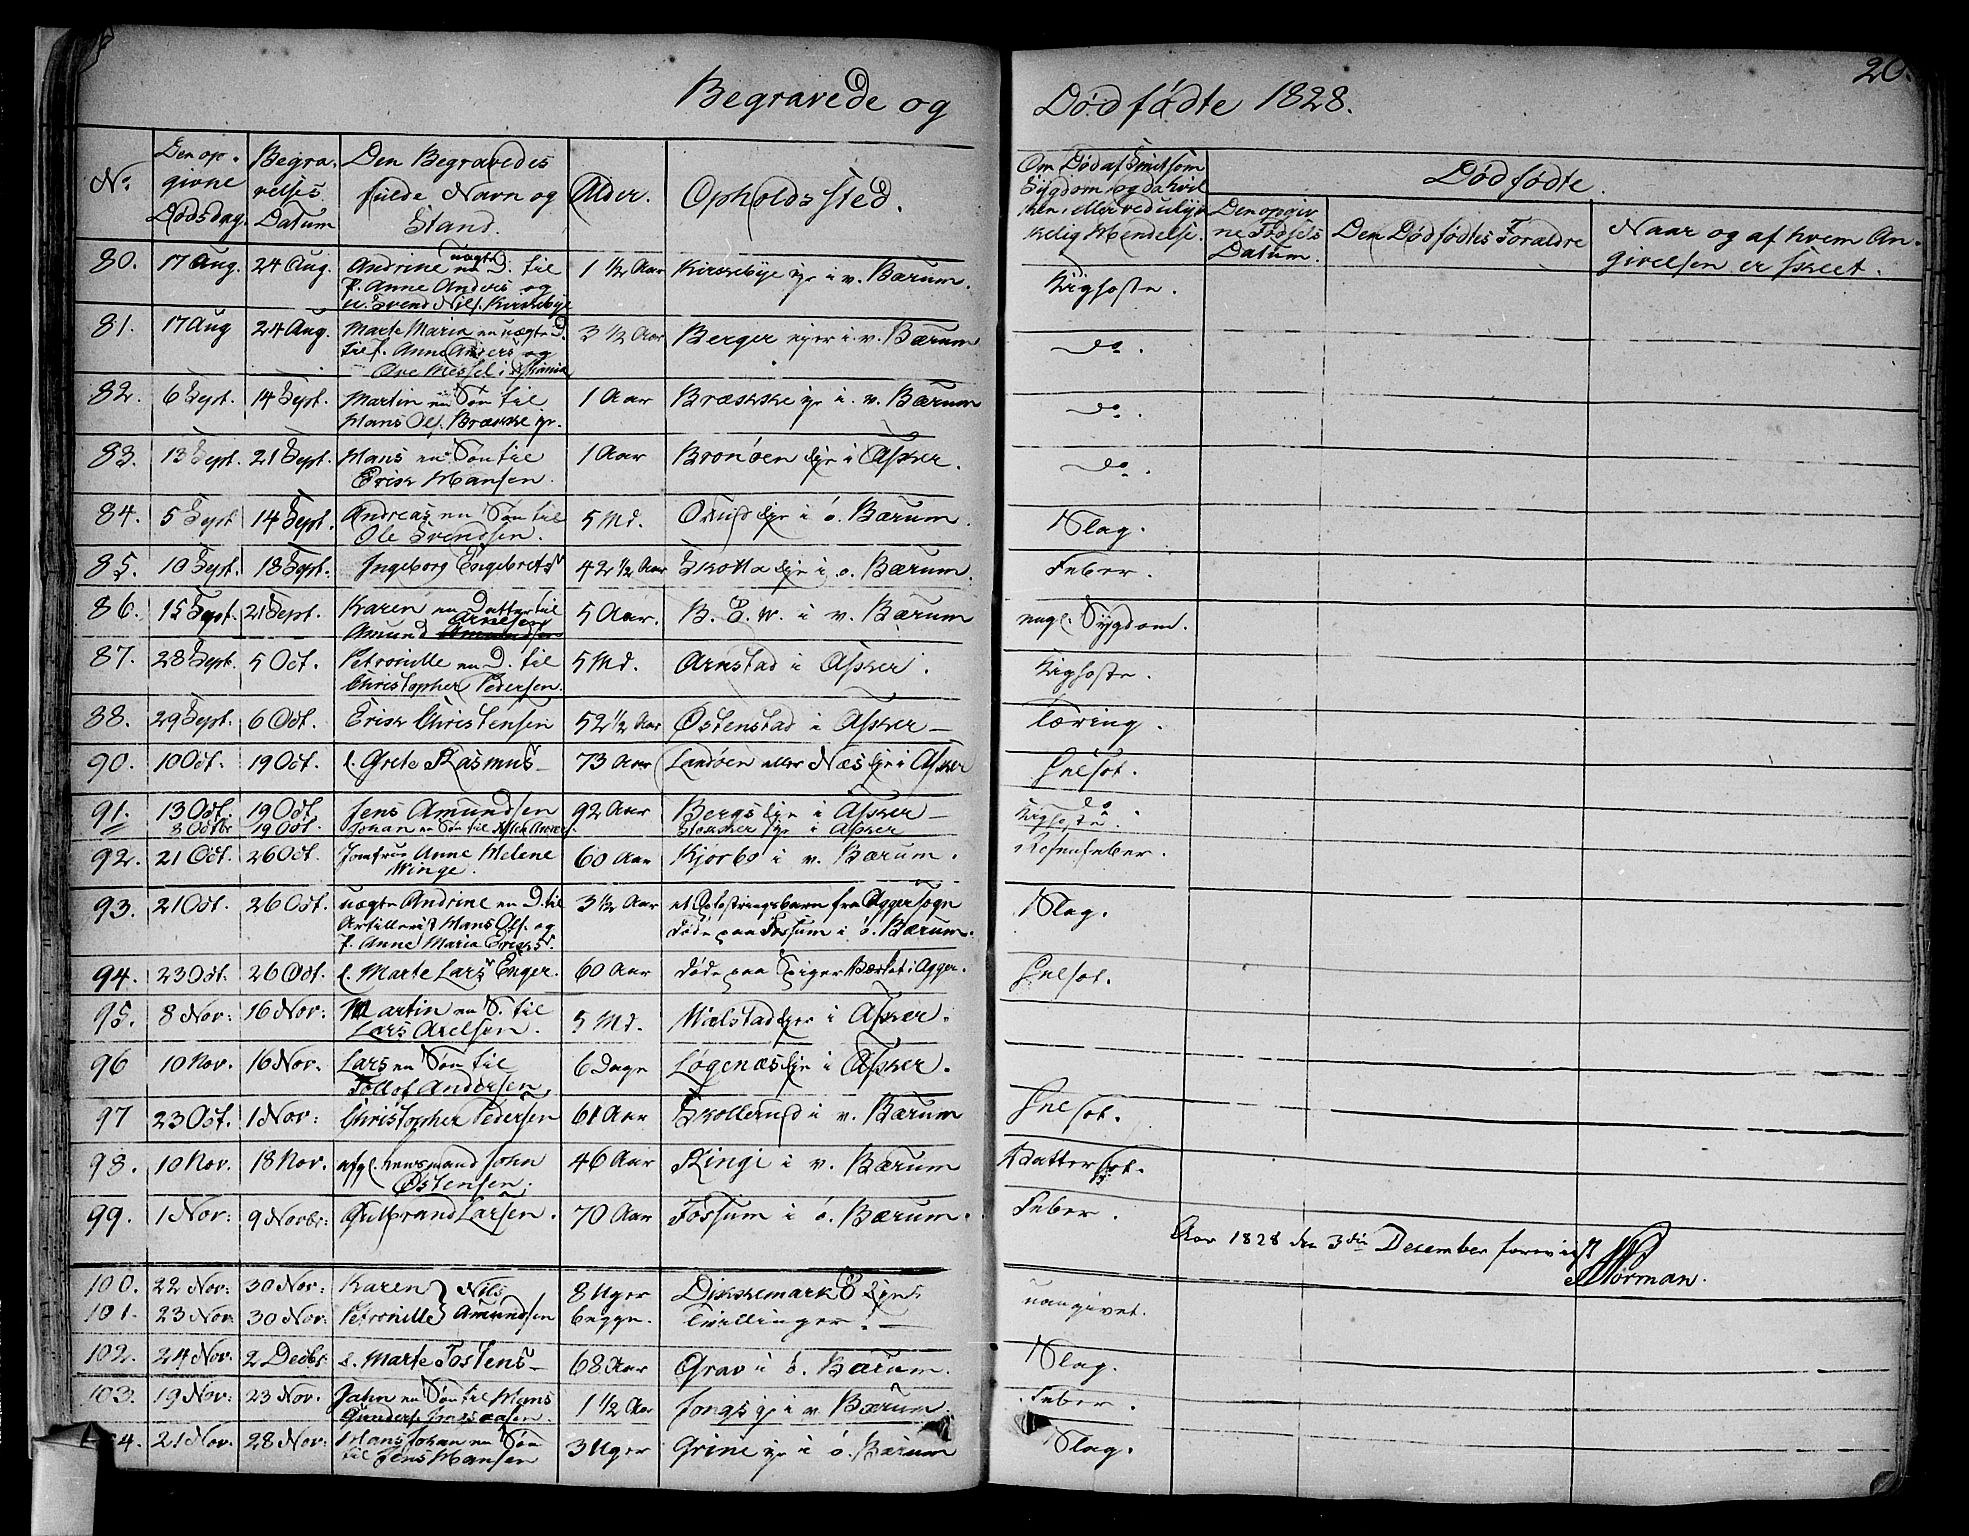 20.
Begravede og Dødfødte 1828.
No. Den opgivne Dødsdag. Begravelses Datum Den Begravedes fulde Navn og Stand. Alder. Opholdssted. Om Død af Smitsom Sygdom og da hvilken, eller ved ulykkelig Hendelse. Dødfødte.
Den opgivne Fødsels Datum. Den Dødfødtes Foraldre Naar og af hvem Angivelsen er skeet.
80. 17 Aug. 24 Aug. Andrine uægte D. til 1 1/2 Aar Kirkebye i v. Bærum. Kighoste.
P. Anne Anders og
u. Svend Nils. Kirkebye
81. 17 Aug 24 Aug. Marte Maria en uægte D. 3 1/2 Aar Berger i v. Bærum do.
til P. Anne Anders og
Ove Messel i
82. 6 Sept. 14 Sept. Martin en Søn til 1 Aar Brække i v. Bærum do.
Hans Ols. Brække
83. 13 Sept. 21 Sept. Hans en Søn til 1 Aar Bronøen i Asker. do.
Erik Hansen.
84. 5 Sept 14 Sept. Andreas en Søn til 5 Md. i ö. Bærum. Slag.
Ole Svendsen.
85. 10 Sept. 18 Sept. Ingeborg Engebretsd 42 1/2 Aar Skotta i ö. Bærum. Feber.
86. 15 Sept. 21 Sept. Karen en Datter til 5 Aar. B. E. W. i v. Bærum engl. Sygdom.
Amund Arnesen
87. 28 Sept. 5 Oct. Petronille en D. til 5 Md. Arnstad i Asker. Kighoste.
Christopher Pedersen.
88. 29 Sept. 6 Oct. Erik Christensen 52 1/2 Aar Østenstad i Asker — Tæring.
90. 10 Oct. 19 Oct. e. Grete Rasmusd 73 Aar Landøen eller Næs i Asker
91. 13 Oct. 19 Oct. Jens Amundsen 92 Aar Bergs i Asker — do
8 Octbr 19 Oct. Johan en Søn til i Asker Kighoste.
92. 21 Oct. 26 Oct. Jomfrue Anne Helene 60 Aar Kjørbo i v. Bærum.
Winge.
93. 21 Oct. 26 Oct. uægte Andrine en D. til 3 1/2 Aar et Opfostringsbarn fra Aggersogn Slag.
Artillerist Hans Ols. og døde paa Fossum i ö. Bærum.
P. Anne Maria Ericksd.
94. 23 Oct. 26 Oct. e. Marte Larsd Enger. 60 Aar døde paa i Agger.
95. 8 Nov: 16 Nov: Martin en S. til 5 Md. i Asker.
Lars Axelsen.
96 10 Nov. 16 Nov. Lars en Søn til 6 Dage Løgenæs i Asker.
Tollof Andersen.
97 23 Oct. 1 Nov: Christopher Pedersen 61 Aar Skollerud i v. Bærum
98. 10 Nov. 18 Nov. John 46 Aar Ringi i v. Bærum Vattersot.
Østensen.
99. 1 Nov: 9 Novbr: Gulbrand Larsen. 70 Aar Fossum i ö. Bærum. Feber.
Aar 1828 den 3die December foreviist Norman.
100. 22 Nov: 30 Nov: Karen } Nils 8 Uger Dikkemark
101. 23 Nov: 30 Nov: Petronille } Amundsen begge. Tvillinger. — uangivet.
102. 24 Nov: 2 Decbr e. Marte Tostensd — 68 Aar Grav i ö. Bærum. Slag.
103. 19 Nov: 23 Nov. en Søn til Hans 1 1/2 Aar Jongs i v Bærum. Feber.
104. 21 Nov: 28 Nov: Hans Johan en Søn 3 Uger Grine i ö. Bærum Slag.
til Jens Hansen